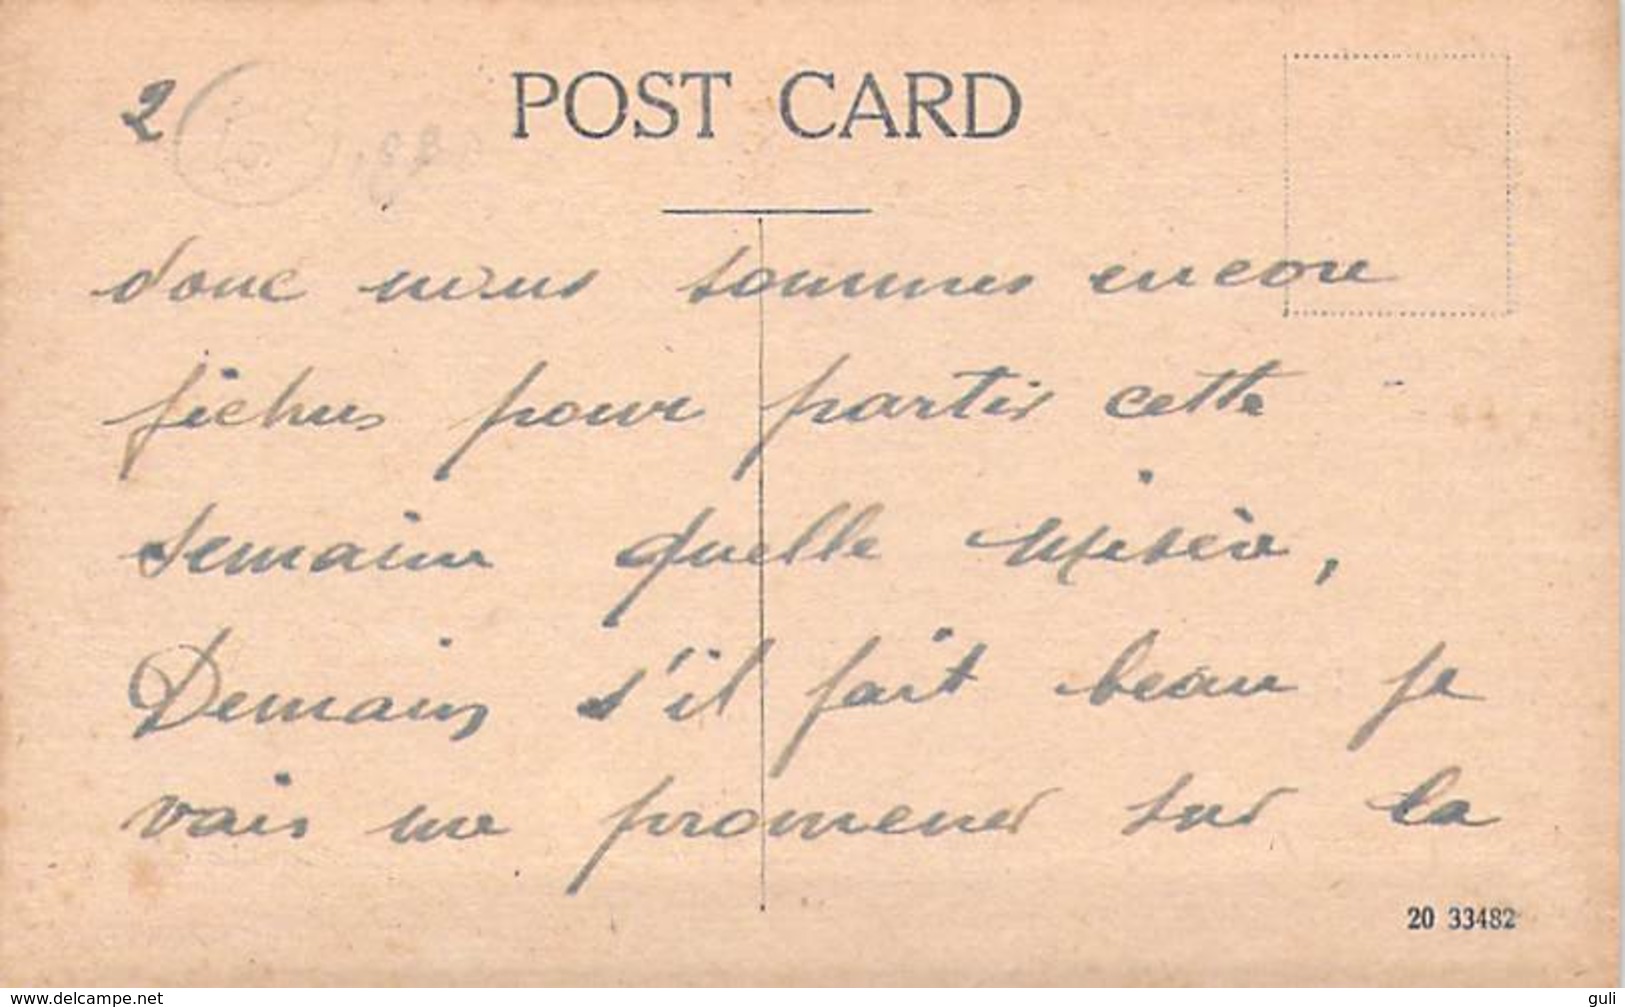 2
POST CARD
donc nous sommes encore
fichus pour partir cette
semaine quelle Misère,
Demain s'il fait beau je
vais me promener sur la
20 33482
www.delcampe.net
guli